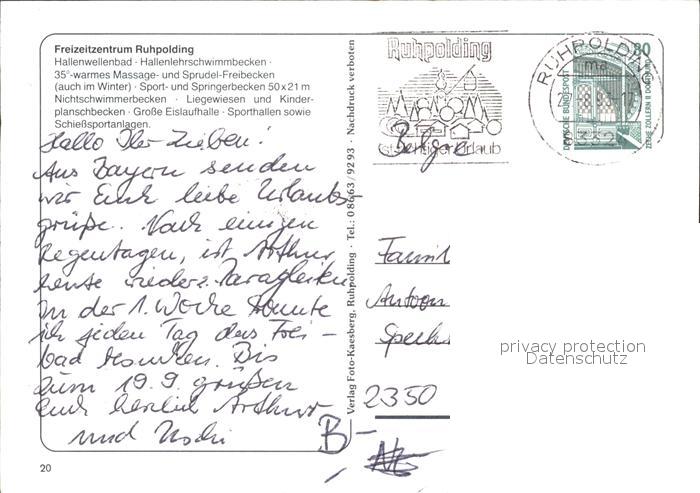 Freizeitzentrum Ruhpolding
Hallenwellenbad · Hallenlehrschwimmbecken ·
35°-warmes Massage- und Sprudel-Freibecken
(auch im Winter) · Sport- und Springerbecken 50 x 21 m
Nichtschwimmerbecken · Liegewiesen und Kinder-
planschbecken · Große Eislaufhalle · Sporthallen sowie
Schießsportanlagen.
Hallo Ihr Lieben!
Aus Bayern senden
wir Euch liebe Urlaubs-
grüße. Nach einigen
Regentagen, ist Arthur
heute wieder z. Paragleiten
In der 1. Woche konnte
ich jeden Tag das Frei-
bad besuchen. Bis
zum 19.9. grüßen
Euch herzlich Arthur
und Uschi
20
Verlag Foto-Kaesberg, Ruhpolding · Tel.: 0 86 63 / 92 93 · Nachdruck verboten
Ruhpolding
Urlaub
RUHPOLDING
80
DEUTSCHE BUNDESPOST
ZECHE ZOLLERN II DORTMUND
2350
B-
privacy protection
Datenschutz